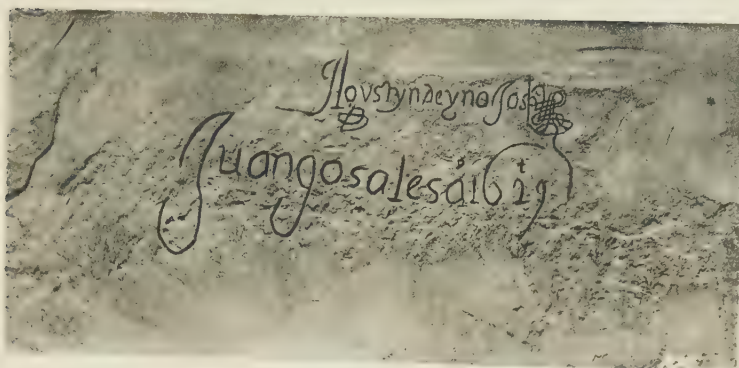 Agvstyndeynojos
Juangosalesa°1629